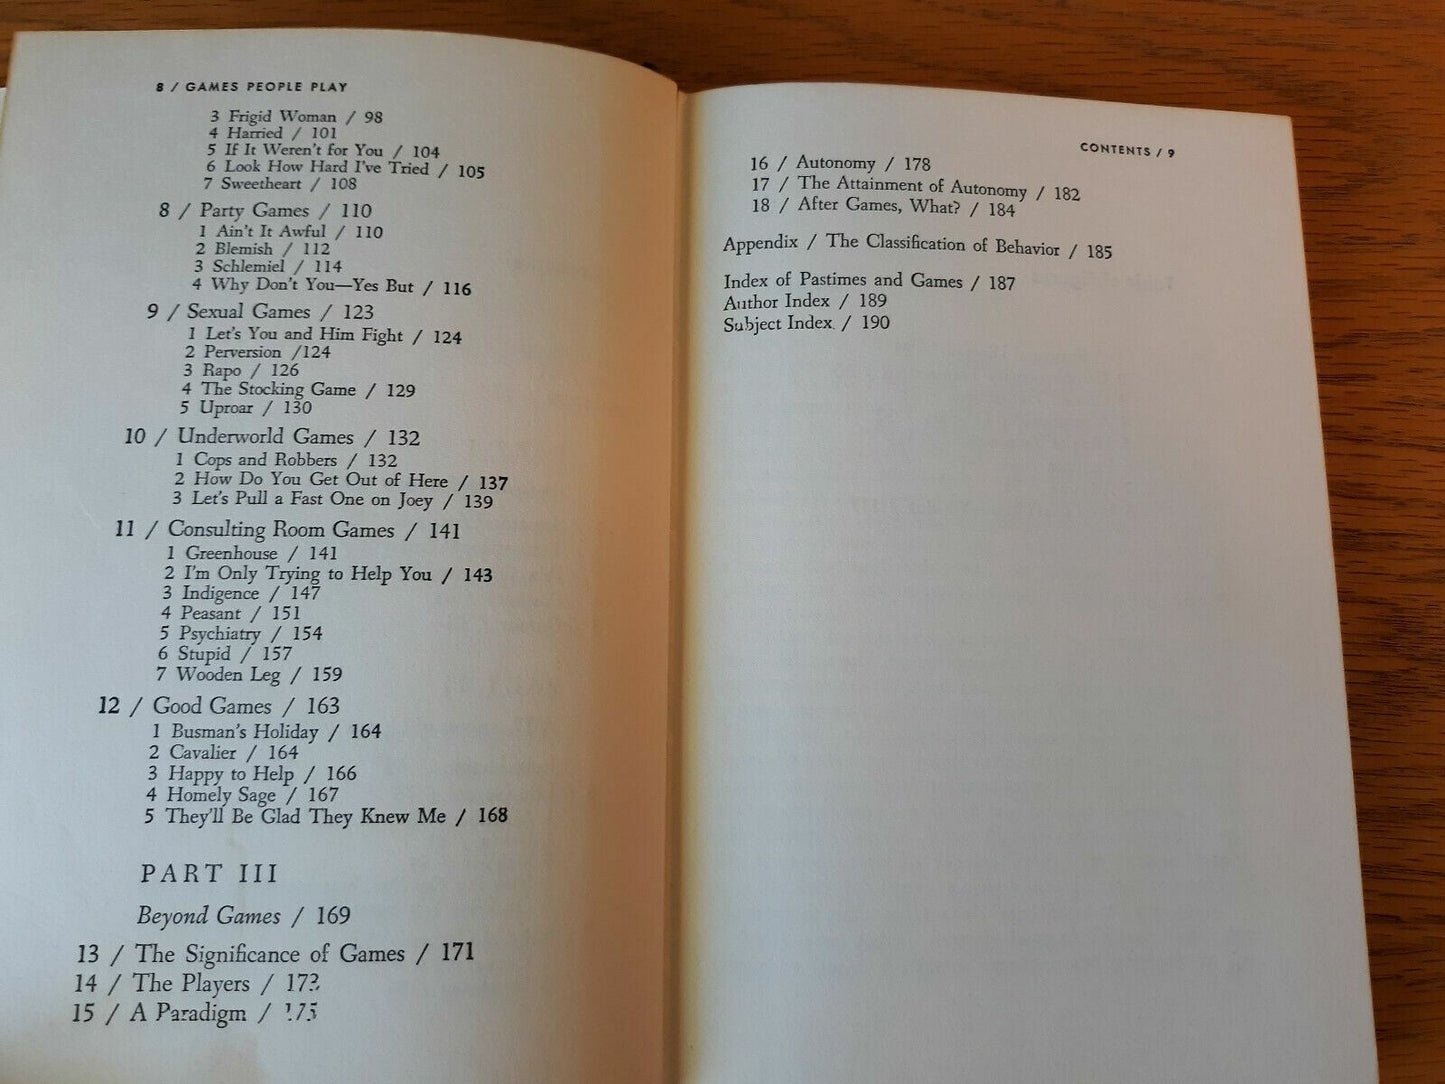 8 / GAMES PEOPLE PLAY
3 Frigid Woman / 98
4 Harried / 101
5 If It Weren't for You / 104
6 Look How Hard I've Tried / 105
7 Sweetheart / 108
8 / Party Games / 110
1 Ain't It Awful / 110
2 Blemish / 112
3 Schlemiel / 114
4 Why Don't You—Yes But / 116
9 / Sexual Games / 123
1 Let's You and Him Fight / 124
2 Perversion /124
3 Rapo / 126
4 The Stocking Game / 129
5 Uproar / 130
10 / Underworld Games / 132
1 Cops and Robbers / 132
2 How Do You Get Out of Here / 137
3 Let's Pull a Fast One on Joey / 139
11 / Consulting Room Games / 141
1 Greenhouse / 141
2 I'm Only Trying to Help You / 143
3 Indigence / 147
4 Peasant / 151
5 Psychiatry / 154
6 Stupid / 157
7 Wooden Leg / 159
12 / Good Games / 163
1 Busman's Holiday / 164
2 Cavalier / 164
3 Happy to Help / 166
4 Homely Sage / 167
5 They'll Be Glad They Knew Me / 168
PART III
Beyond Games / 169
13 / The Significance of Games / 171
14 / The Players /
15 / A Paradigm / 175
CONTENTS / 9
16 / Autonomy / 178
17 / The Attainment of Autonomy / 182
18 / After Games, What? / 184
Appendix / The Classification of Behavior / 185
Index of Pastimes and Games / 187
Author Index / 189
Subject Index / 190